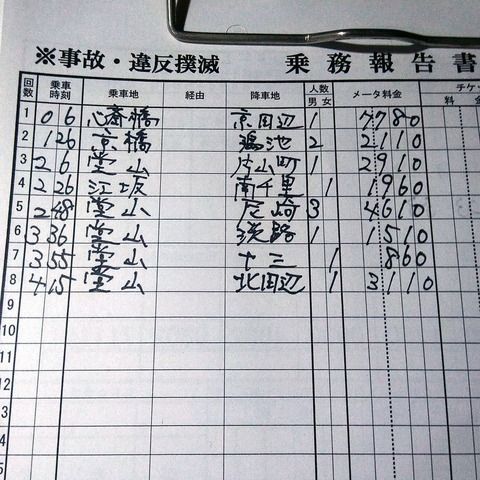 ※事故・違反撲滅 乗務報告書
回数 乗車時刻 乗車地 経由 降車地 人数 男女 メータ料金 チケ 料金
1 0 6 心斎橋 京田辺 1 7780
2 1 26 京橋 鴻池 2 2110
3 2 6 堂山 片山町 1 2910
4 2 26 江坂 南千里 1 1960
5 2 48 堂山 尼崎 3 4610
6 3 36 堂山 1 1510
7 3 55 堂山 十三 1 860
8 4 15 堂山 北田辺 1 3110
9
10
11
12
3
4
5